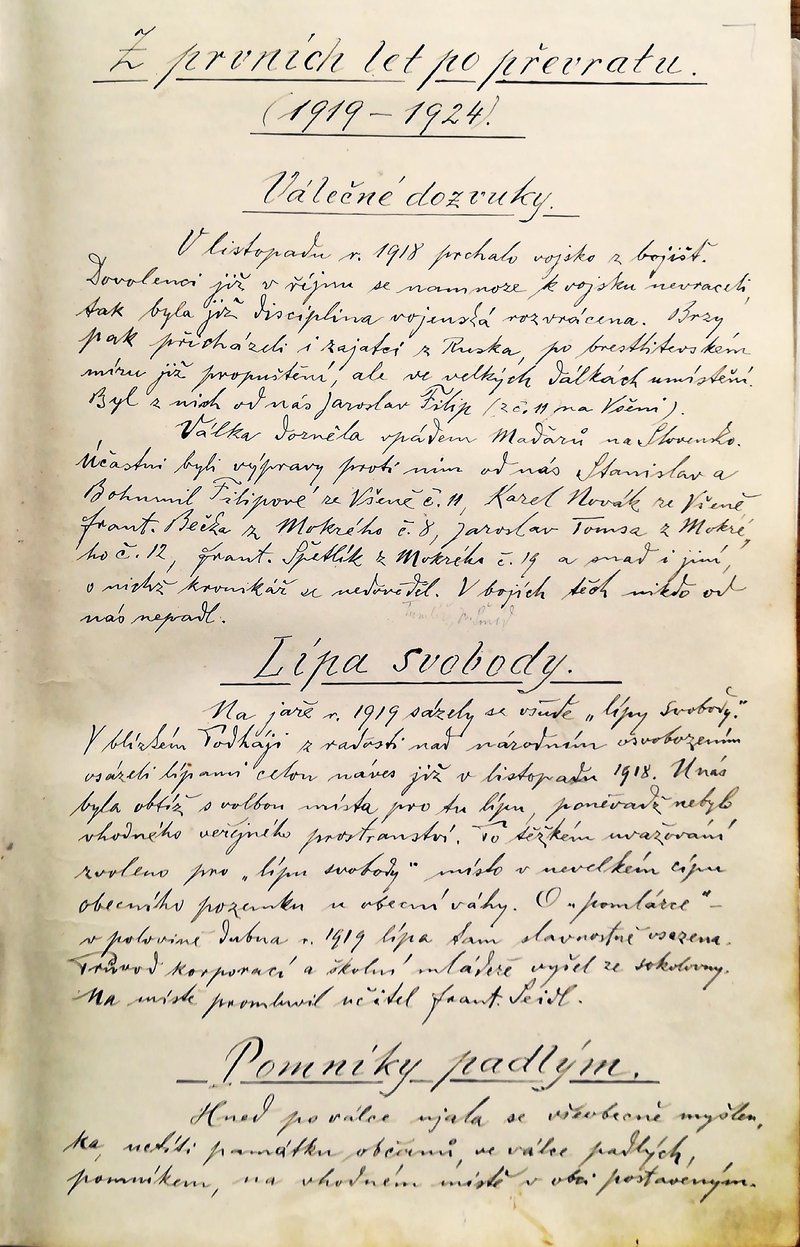 Z prvních let po převratu.
(1919 – 1924).
Válečné dozvuky.
V listopadu r. 1918 prchalo vojsko z bojišť.
Dovolenci již v říjnu se namnoze k vojsku nevraceli,
tak byla již disciplina vojenská rozvrácena. Brzy
pak přicházeli i zajatci z Ruska, po brestlitevském
míru již propuštění, ale ve velkých dálkách umístění.
Byl z nich od nás Jaroslav Filip (z č. 11 na Všeni).
Válka dozněla vpádem Maďarů na Slovensko.
Účastni byli výpravy proti nim od nás Stanislav a
Bohumil Filipové ze Všeně č. 11, Karel Novák ze Všeně,
Frant. Bečka z Mokrého č. 8, Jaroslav Tomsa z Mokré-
ho č. 12, Frant. Špetlík z Mokrého č. 19 a snad i jiní,
o nichž kronikář se nedověděl. V bojích těch nikdo od
nás nepadl.
Lípa svobody.
Na jaře r. 1919 sázely se všude „lípy svobody."
V blízkém Podháji z radosti nad národním osvobozením
osázeli lípami celou náves již v listopadu 1918. U nás
byla obtíž s volbou místa pro tu lípu, poněvadž nebylo
vhodného veřejného prostranství. Po těžkém uvažování
zvoleno pro „lípu svobody" místo v nevelkém cípu
obecního pozemku u obecní váhy. O „pomlázce" –
v polovině dubna r. 1919 lípa tam slavnostně vsazena.
Průvod korporací a školní mládeže vyšel ze sokolovny.
Na místě promluvil učitel Frant. Seidl.
Pomníky padlým.
Hned po válce ujala se všeobecně myšlen,
ka, uctíti památku občanů, ve válce padlých,
pomníkem, na vhodném místě v obci postaveným.